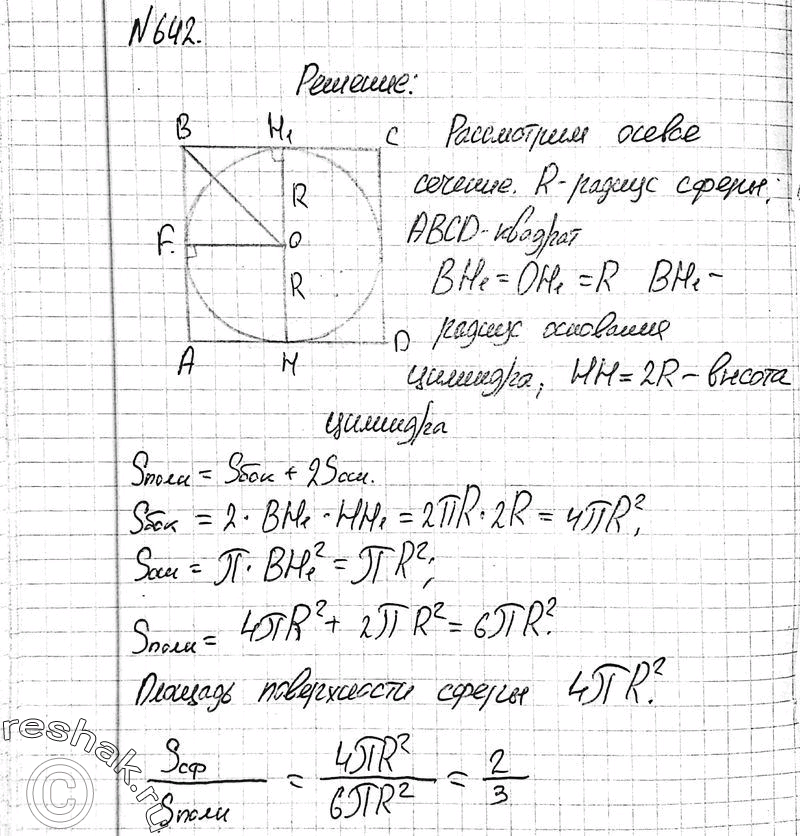 N642.
Решение:
B H₁ C
Рассмотрим осевое
сечение. R-радиус сферы;
ABCD-квадрат
R
F. O
R
BH₁ = OH₁ = R BH₁ -
радиус основания
A H D
цилиндра; HH = 2R - высота
цилиндра
Sполн = Sбок + 2Sосн.
Sбок = 2 · BH₁ · HH₁ = 2πR · 2R = 4πR²;
Sосн = π · BH₁² = πR²;
Sполн = 4πR² + 2πR² = 6πR².
Площадь поверхности сферы 4πR².
Sсф / Sполн = 4πR² / 6πR² = 2 / 3
reshak.ru
©